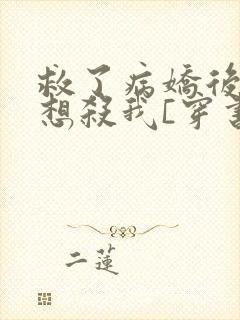 救了病嬌後
想殺我[穿書
二蓮